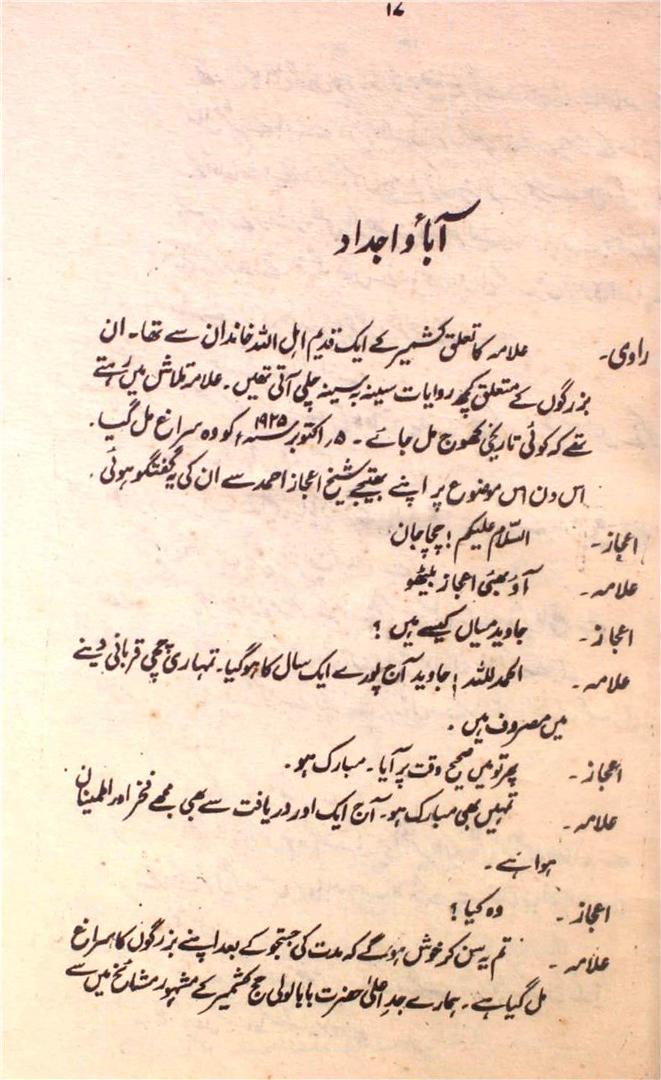 ۱۷
آباؤ اجداد
راوی۔ علامہ کا تعلق کشمیر کے ایک قدیم اہل اللہ خاندان سے تھا۔ ان
بزرگوں کے متعلق کچھ روایات سینہ بہ سینہ چلی آتی تھیں۔ علامہ تلاش میں رہتے
تھے کہ کوئی تاریخی کھوج مل جائے۔ ۵ر اکتوبر ۱۹۲۵ء کو وہ سراغ مل گیا۔
اس دن اس موضوع پر اپنے بھتیجے شیخ اعجاز احمد سے ان کی یہ گفتگو ہوئی۔
اعجاز۔ السّلام علیکم! چچا جان
علامہ۔ آؤ بھئی اعجاز بیٹھو
اعجاز۔ جاوید میاں کیسے ہیں؟
علامہ۔ الحمد للہ! جاوید آج پورے ایک سال کا ہو گیا۔ تمہاری چچی قربانی دینے
میں مصروف ہیں۔
اعجاز۔ پھر تو میں صحیح وقت پر آیا۔ مبارک ہو۔
علامہ۔ تمہیں بھی مبارک ہو۔ آج ایک اور دریافت سے بھی مجھے فخر اور اطمینان
ہوا ہے۔
اعجاز۔ وہ کیا؟
علامہ۔ تم یہ سن کر خوش ہو گے کہ مدت کی جستجو کے بعد اپنے بزرگوں کا سراغ
مل گیا ہے۔ ہمارے جدِ اعلیٰ حضرت بابا لولی حج کشمیر کے مشہور مشائخ میں سے